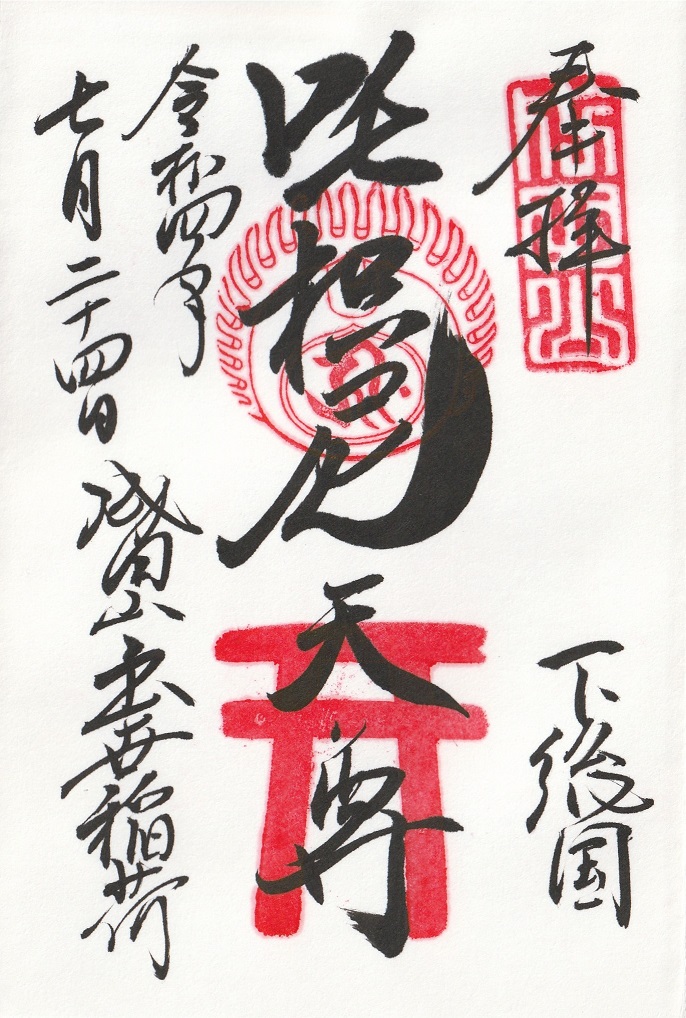 奉拝
下総国
吒枳尼天尊
令和四年
七月二十四日
成田山出世稲荷